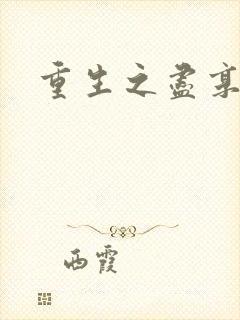 重生之盡
西霞